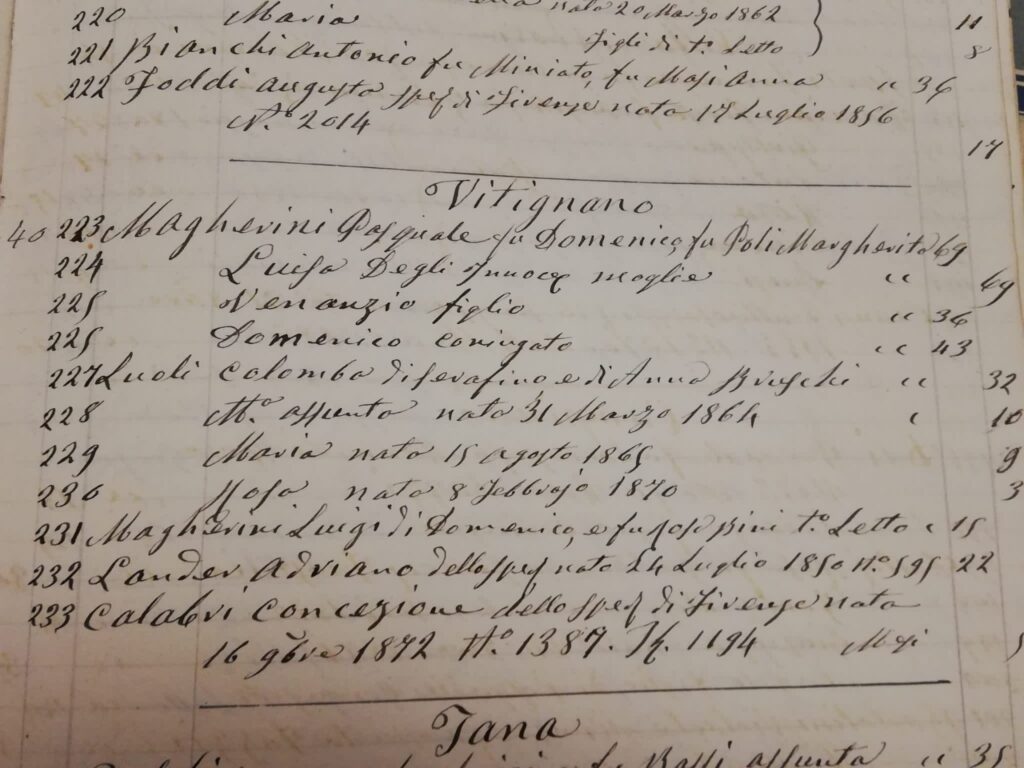 nata 20 Marzo 1862
220 Maria 11
Figli di 1.º Letto 8
221 Bianchi Antonio fu Miniato, fu Masi Anna " 36
222 Foddi Augusta sped. di Firenze nata 17 Luglio 1856
N.º 2014 17
Vitignano
40 223 Magherini Pasquale fu Domenico, fu Poli Margherita 69
224 Luisa Degli Innoc. moglie " 69
225 Venanzio figlio " 36
225 Domenico coniugato " 43
227 Luoli Colomba di Serafino e di Anna Bruschi " 32
228 M.ª Assunta nata 31 Marzo 1864 " 10
229 Maria nata 15 Agosto 1865 9
230 Rosa nata 8 Febbrajo 1870 3
231 Magherini Luigi di Domenico, e fu Rosa Bini 1.º Letto " 15
232 Lander Adriano dello Sped nato 24 Luglio 1850 N.º 595 22
233 Calabri Concezione dello Sped. di Firenze nata
16 9bre 1872 N.º 1387. 1194 Mesi 5
Tana
fu Bassi Assunta " 35